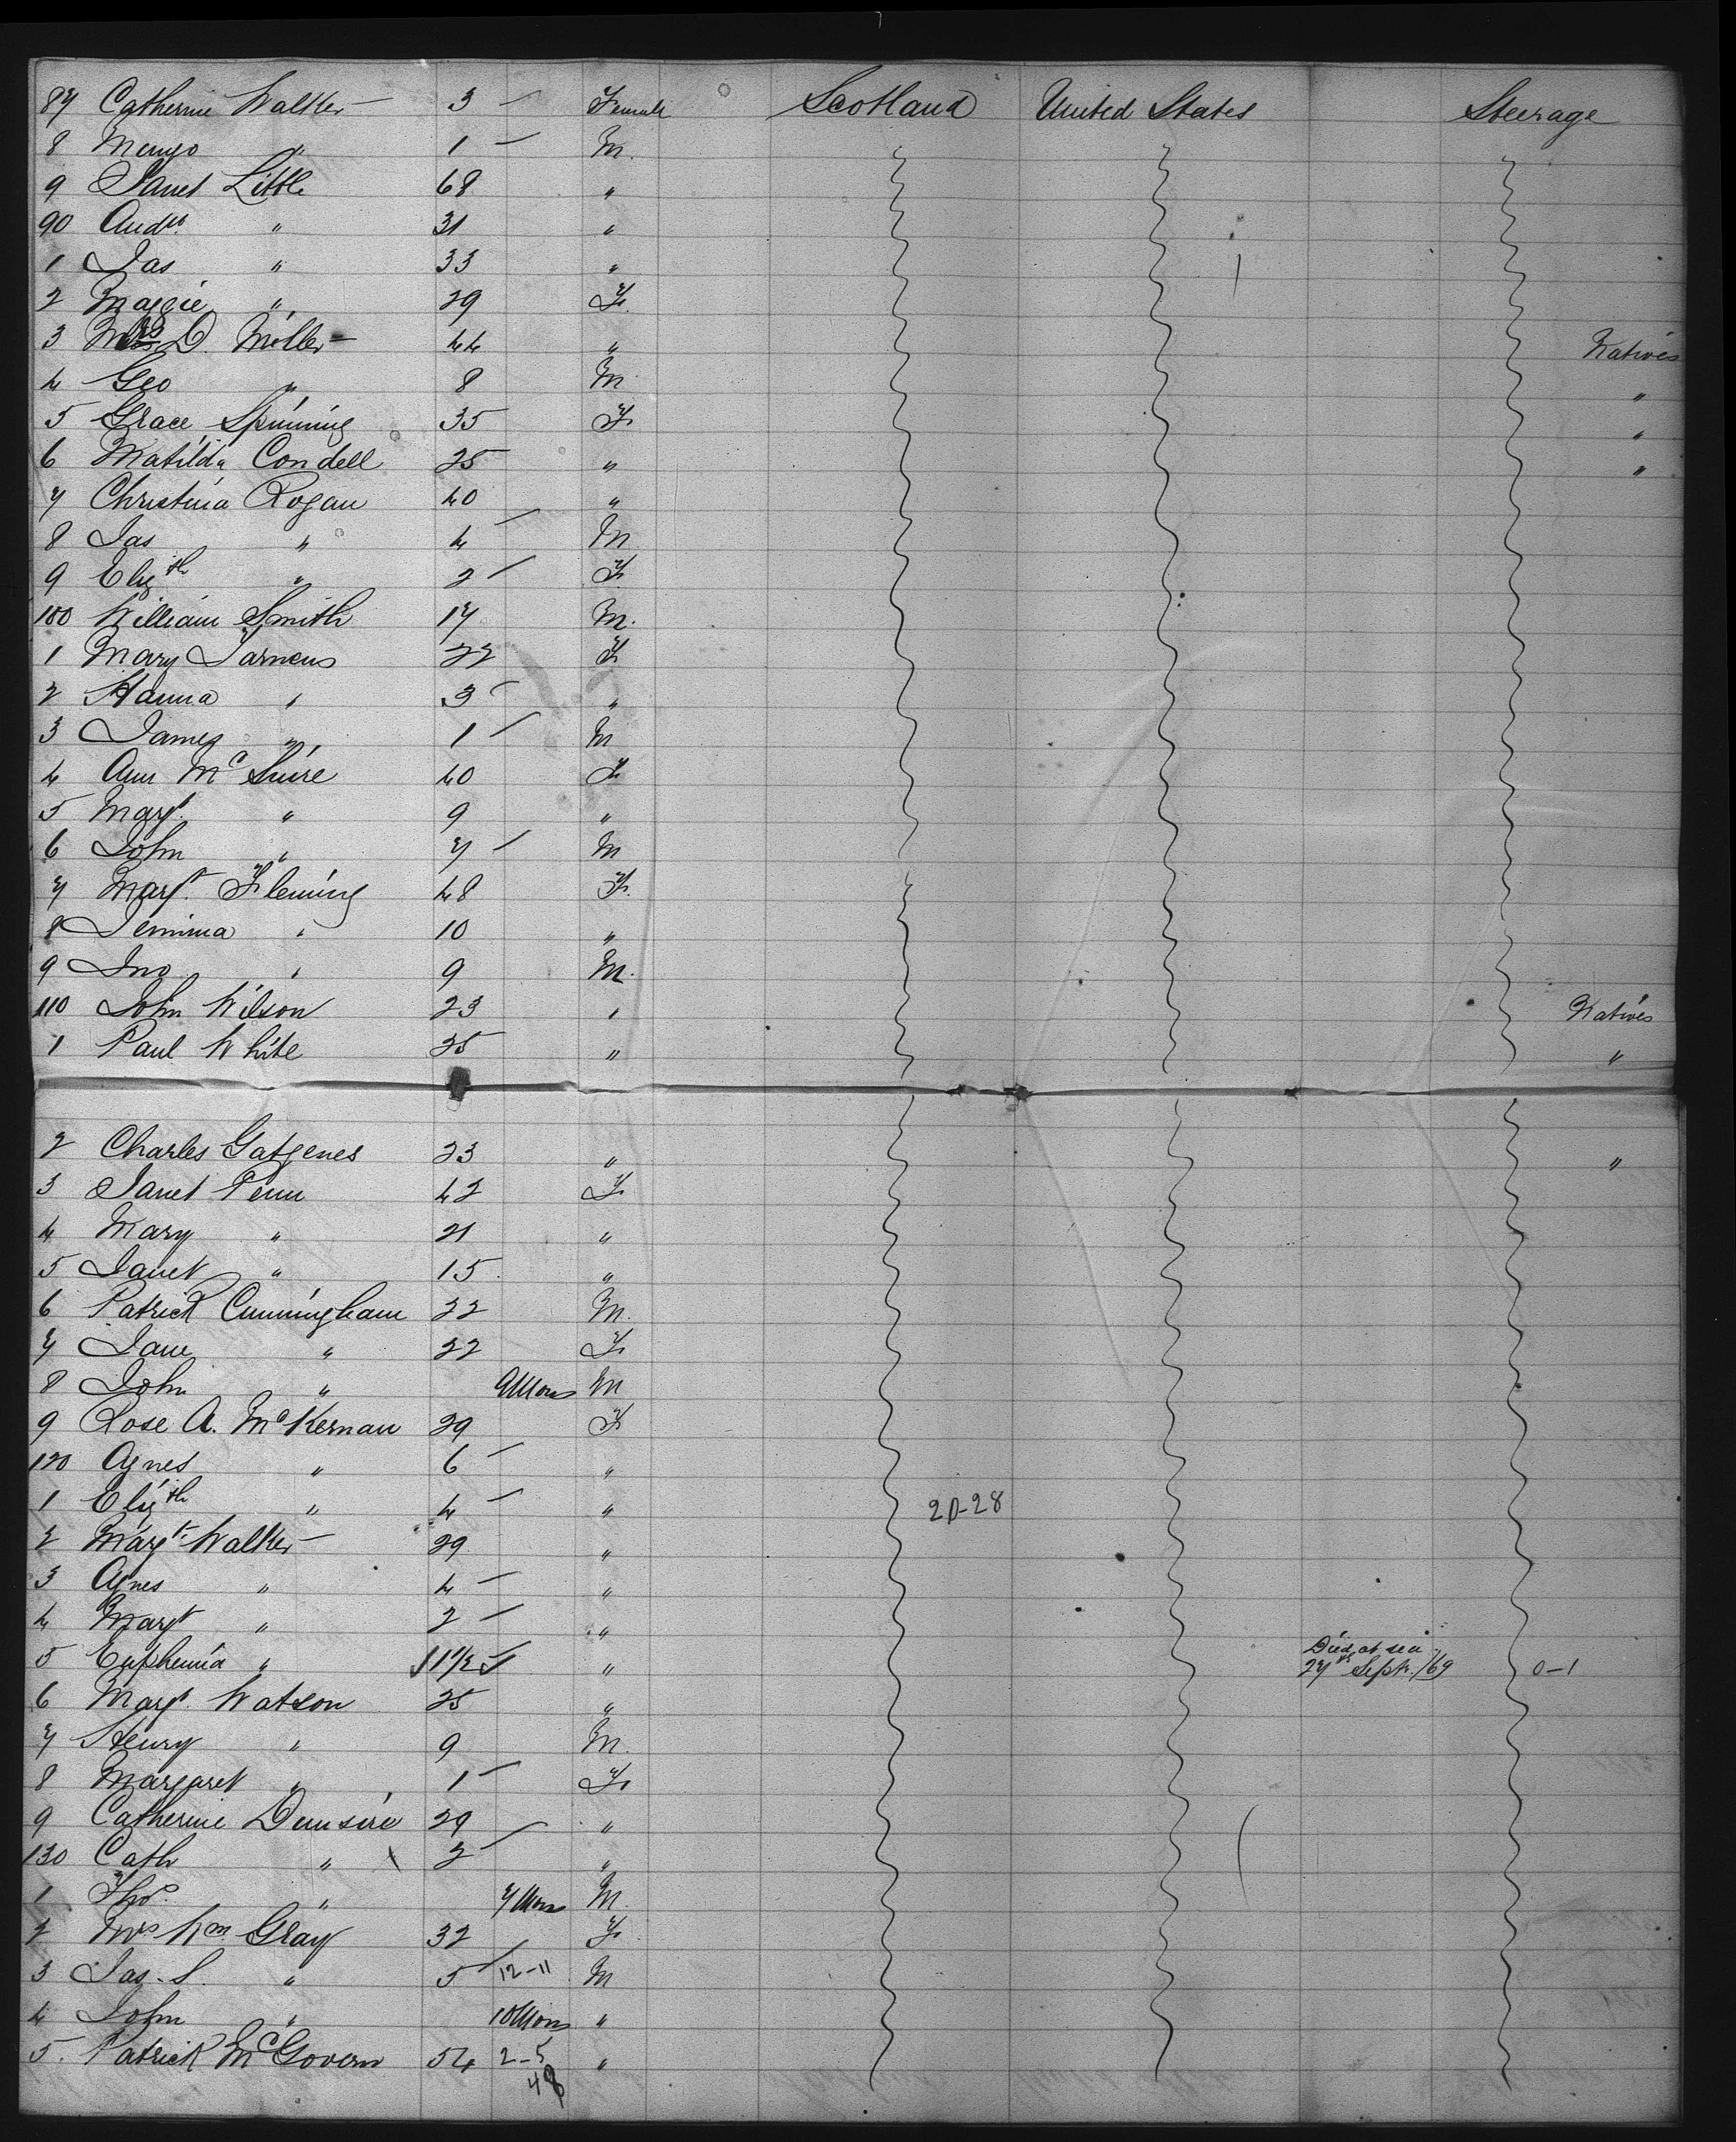 87 Catherine Walker 3 – Female Scotland United States Steerage
8 Mungo " 1 – M.
9 Janet Little 68 "
90 Andw " 31 "
1 Jas " 33 "
2 Maggie " 29 F.
3 Mrs D. Miller 44 " Natives
4 Geo " 8 M "
5 Grace Spinning 35 F "
6 Matilda Condell 25 " "
7 Christina Rogan 40 "
8 Jas " 4 – M
9 Elizth " 2 – F
100 William Smith 17 M.
1 Mary Jarneus 22 F
2 Hanna " 3 – "
3 James " 1 – M
4 Ann Mc 40 F
5 Margt. " 9 "
6 John " 7 – M
7 Margt. Fleming 48 F.
8 Jemima " 10 "
9 Jno " 9 M.
110 John Wilson 23 " Natives
1 Paul White 25 " "
2 Charles Gatgenes 23 " "
3 Janet Penn 42 F
4 Mary " 21 "
5 Janet " 15 "
6 Patrick Cunningham 22 M.
7 Jane " 22 F
8 John " 9 Mons M
9 Rose A. McKernan 29 F
120 Agnes " 6 – "
1 Elizth " 4 – " 20-28
2 Margt. Walker 29 "
3 Agnes " 4 – "
4 Margt " 2 – "
5 Euphemia " 11/2 " Died at sea
27th Sept. /69 0-1
6 Margt. Watson 25 "
7 Henry " 9 M.
8 Margaret " 1 – F
9 Catherine Dunsire 29 "
130 Cath " 2 – "
1 Thos. " 7 Mons M.
2 Mrs Wm Gray 32 F
3 Jas. S. " 5 – 12-11 M
4 John " 10 Mons "
5. Patrick McGovern 54 2-5 "
48